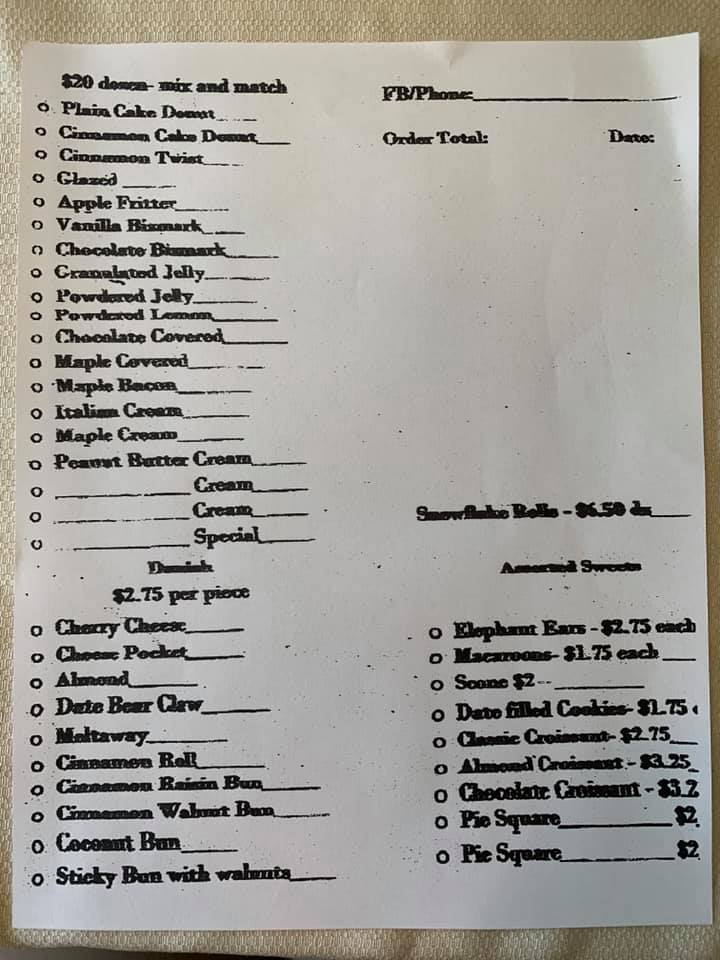 $20 dozen- mix and match
o Plain Cake Donut____
o Cinnamon Cake Donut____
o Cinnamon Twist____
o Glazed ____
o Apple Fritter____
o Vanilla Bismark____
o Chocolate Bismark____
o Granulated Jelly____
o Powdered Jelly____
o Powdered Lemon____
o Chocolate Covered____
o Maple Covered____
o Maple Bacon____
o Italian Cream____
o Maple Cream____
o Peanut Butter Cream____
o __________ Cream____
o __________ Cream____
o __________ Special____
Danish
$2.75 per piece
o Cherry Cheese____
o Cheese Pocket____
o Almond____
o Date Bear Claw____
o Meltaway____
o Cinnamon Roll____
o Cinnamon Raisin Bun____
o Cinnamon Walnut Bun____
o Coconut Bun____
o Sticky Bun with walnuts____
FB/Phone:____________
Order Total: Date:
Snowflake Rolls - $6.50 dz____
Assorted Sweets
o Elephant Ears - $2.75 each
o Macaroons- $1.75 each ____
o Scone $2-- ________
o Date filled Cookies- $1.75
o Classic Croissant- $2.75____
o Almond Croissant - $3.25_
o Chocolate Croissant - $3.2
o Pie Square__________$2
o Pie Square__________$2